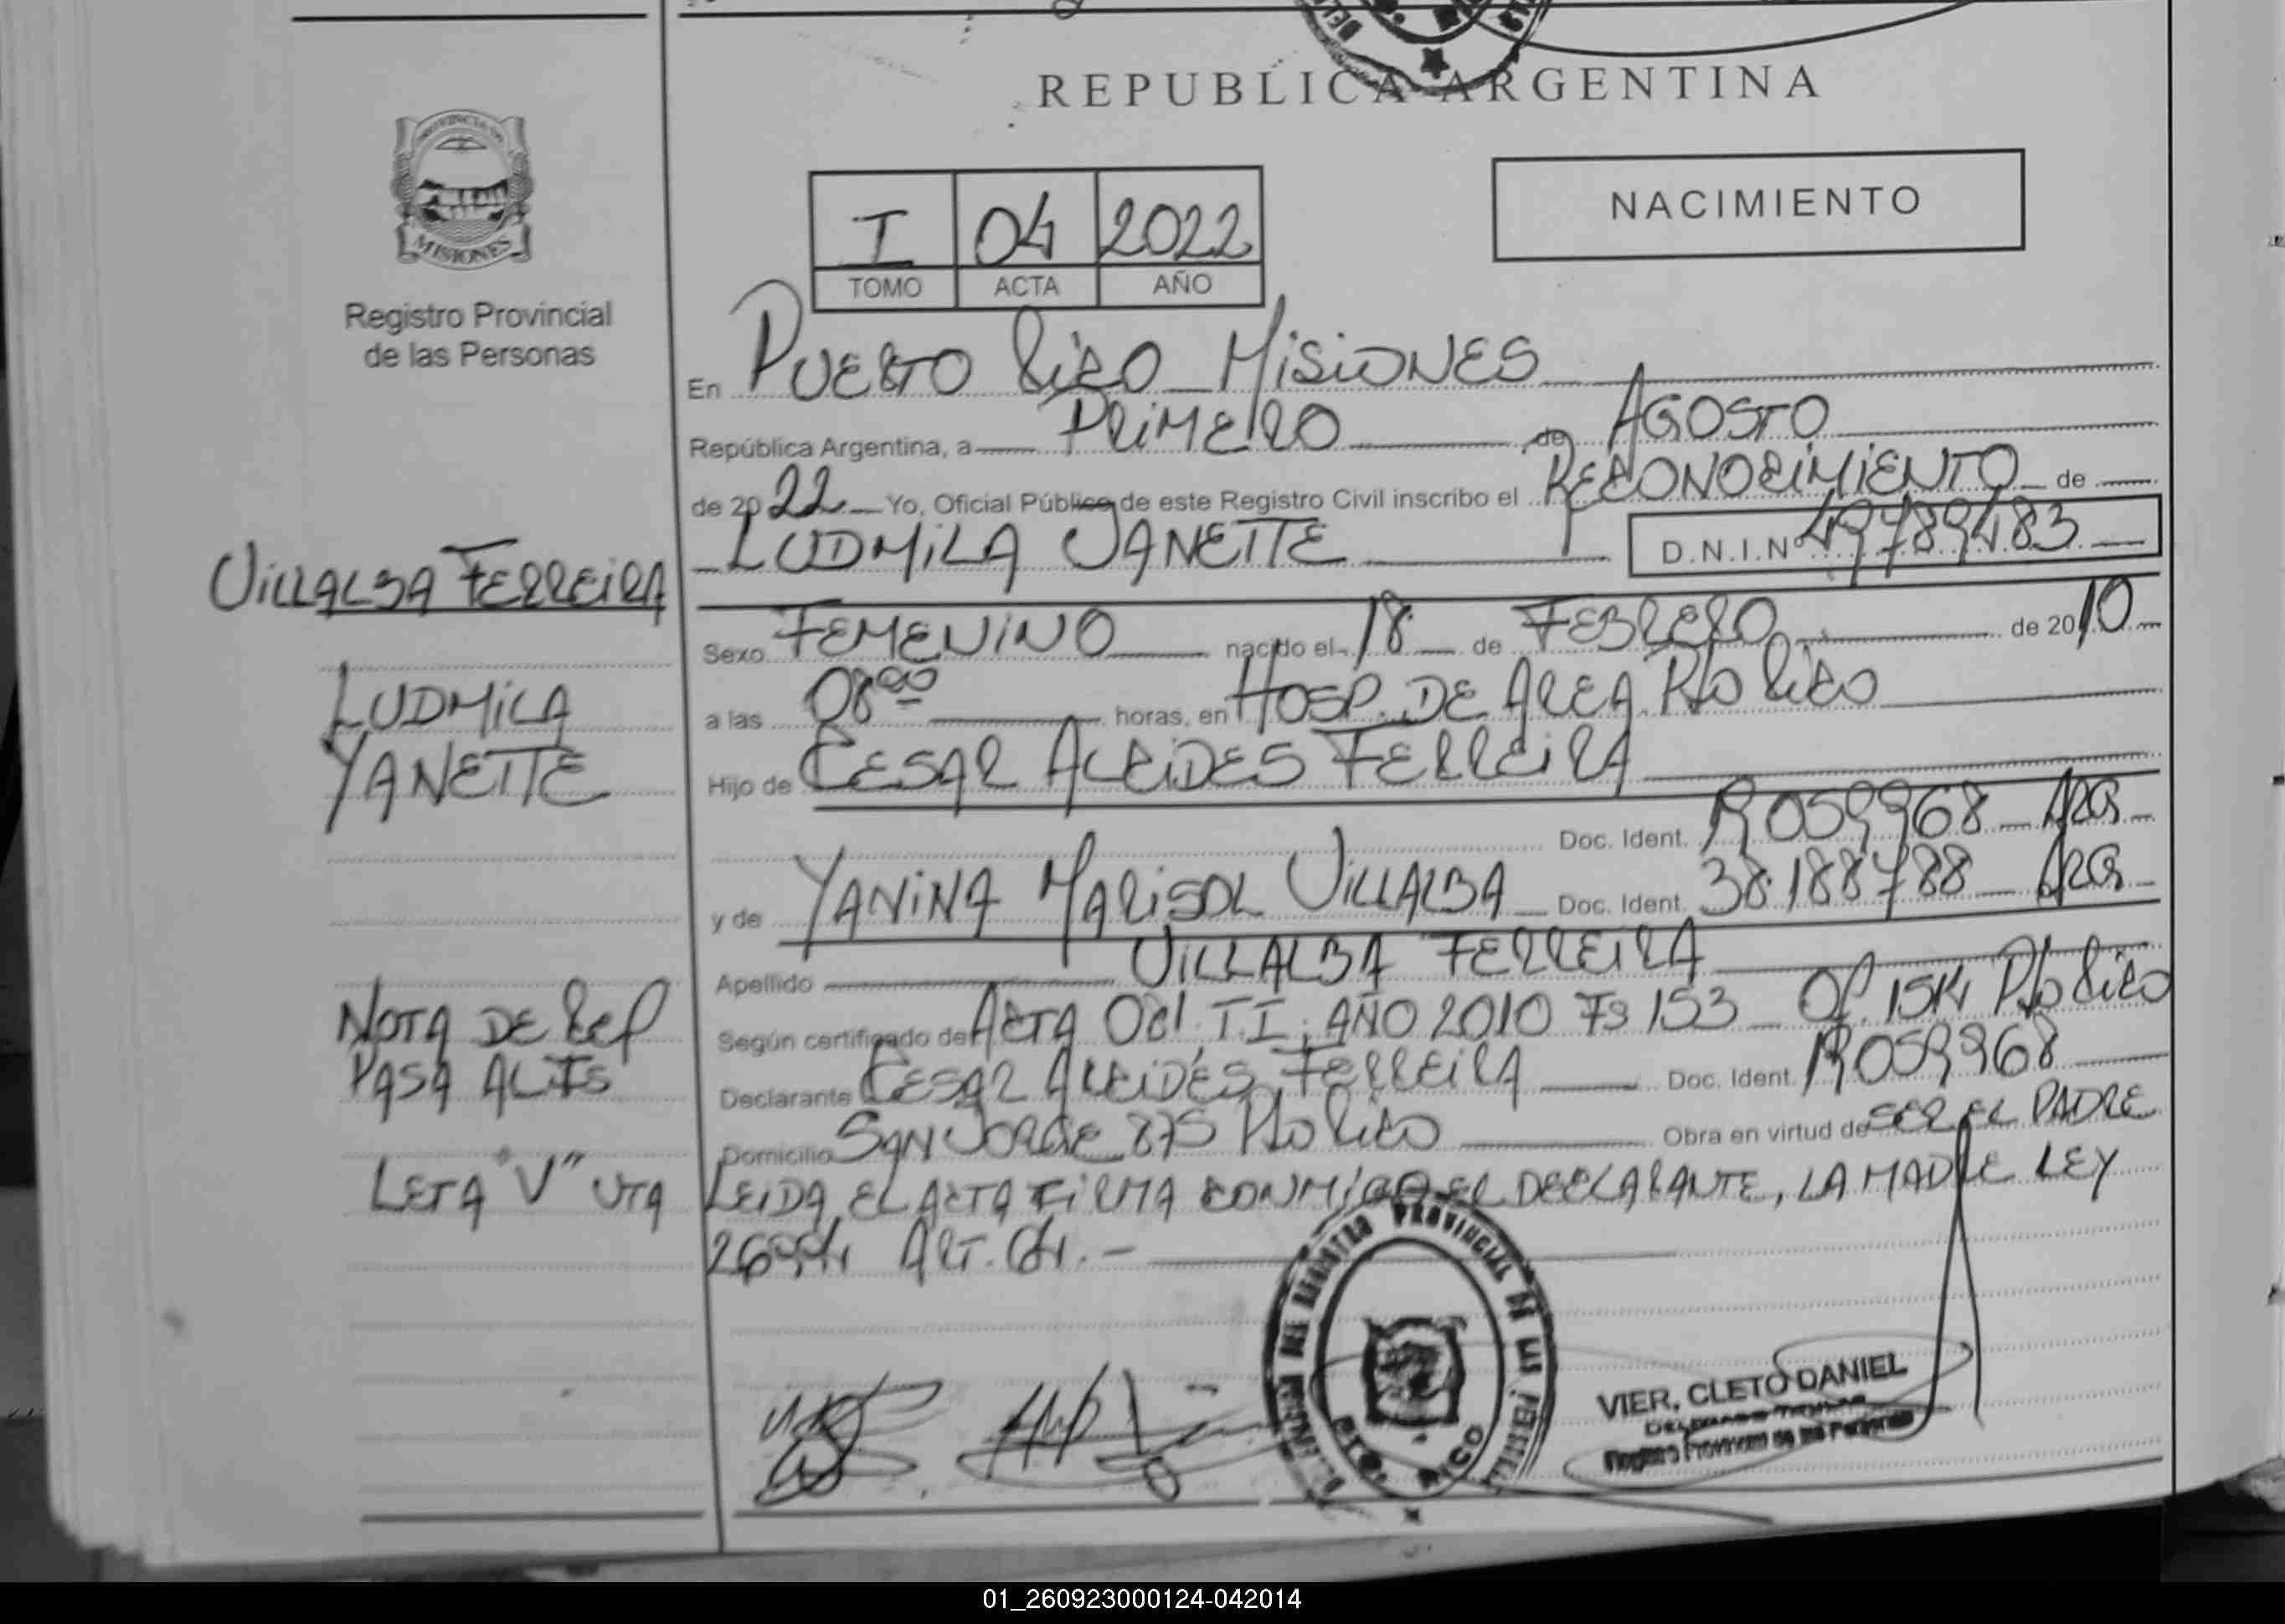 REPUBLICA ARGENTINA
PROVINCIA DE
MISIONES
Registro Provincial
de las Personas
I 04 2022
TOMO ACTA AÑO
NACIMIENTO
En PUERTO RICO MISIONES
República Argentina, a PRIMERO de AGOSTO
de 2022 Yo, Oficial Público de este Registro Civil inscribo el RECONOCIMIENTO de
LUDMILA JANETTE D.N.I.Nº 49789483
VILLALBA FERREIRA
LUDMILA
YANETTE
Sexo FEMENINO nacido el 18 de FEBRERO de 2010
a las 08 00 horas, en HOSP. DE AREA Pto RICO
Hijo de CESAR ALCIDES FERREIRA
Doc. Ident. R059968 ARG
y de YANINA MARISOL VILLALBA Doc. Ident. 38.188788 ARG
Apellido VILLALBA FERREIRA
NOTA DE REF
PASA AL Fs
LETA "V" VTA
Según certificado de ACTA 081 T.I. AÑO 2010 Fs 153 Of. 1514 Pto RICO
Declarante CESAR ALCIDES FERREIRA Doc. Ident. R059968
Domicilio SAN JORGE 875 Pto RICO Obra en virtud de SER EL PADRE
LEIDA EL ACTA FIRMA CONMIGO EL DECLARANTE, LA MADRE LEY
26994 ART. 64.-
REGISTRO PROVINCIAL DE LAS PERSONAS
PTO. RICO
VIER, CLETO DANIEL
DELEGADO TITULAR
Registro Provincial de las Personas
01_260923000124-042014